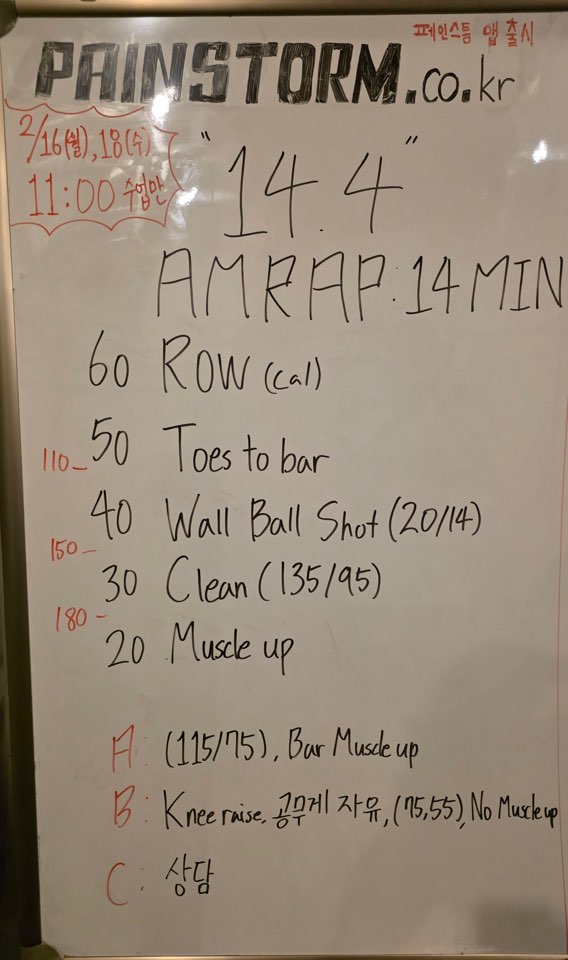 프페인스톰 앱 출시
PAINSTORM.co.kr
2/16(월), 18(수)
11:00 수업만
"14.4"
AMRAP: 14 MIN
60 ROW (cal)
110- 50 Toes to bar
40 Wall Ball Shot (20/14)
150-
30 Clean (135/95)
180-
20 Muscle up
A: (115/75), Bar Muscle up
B: Knee raise, 공무게 자유, (75,55), No Muscle up
C: 상담